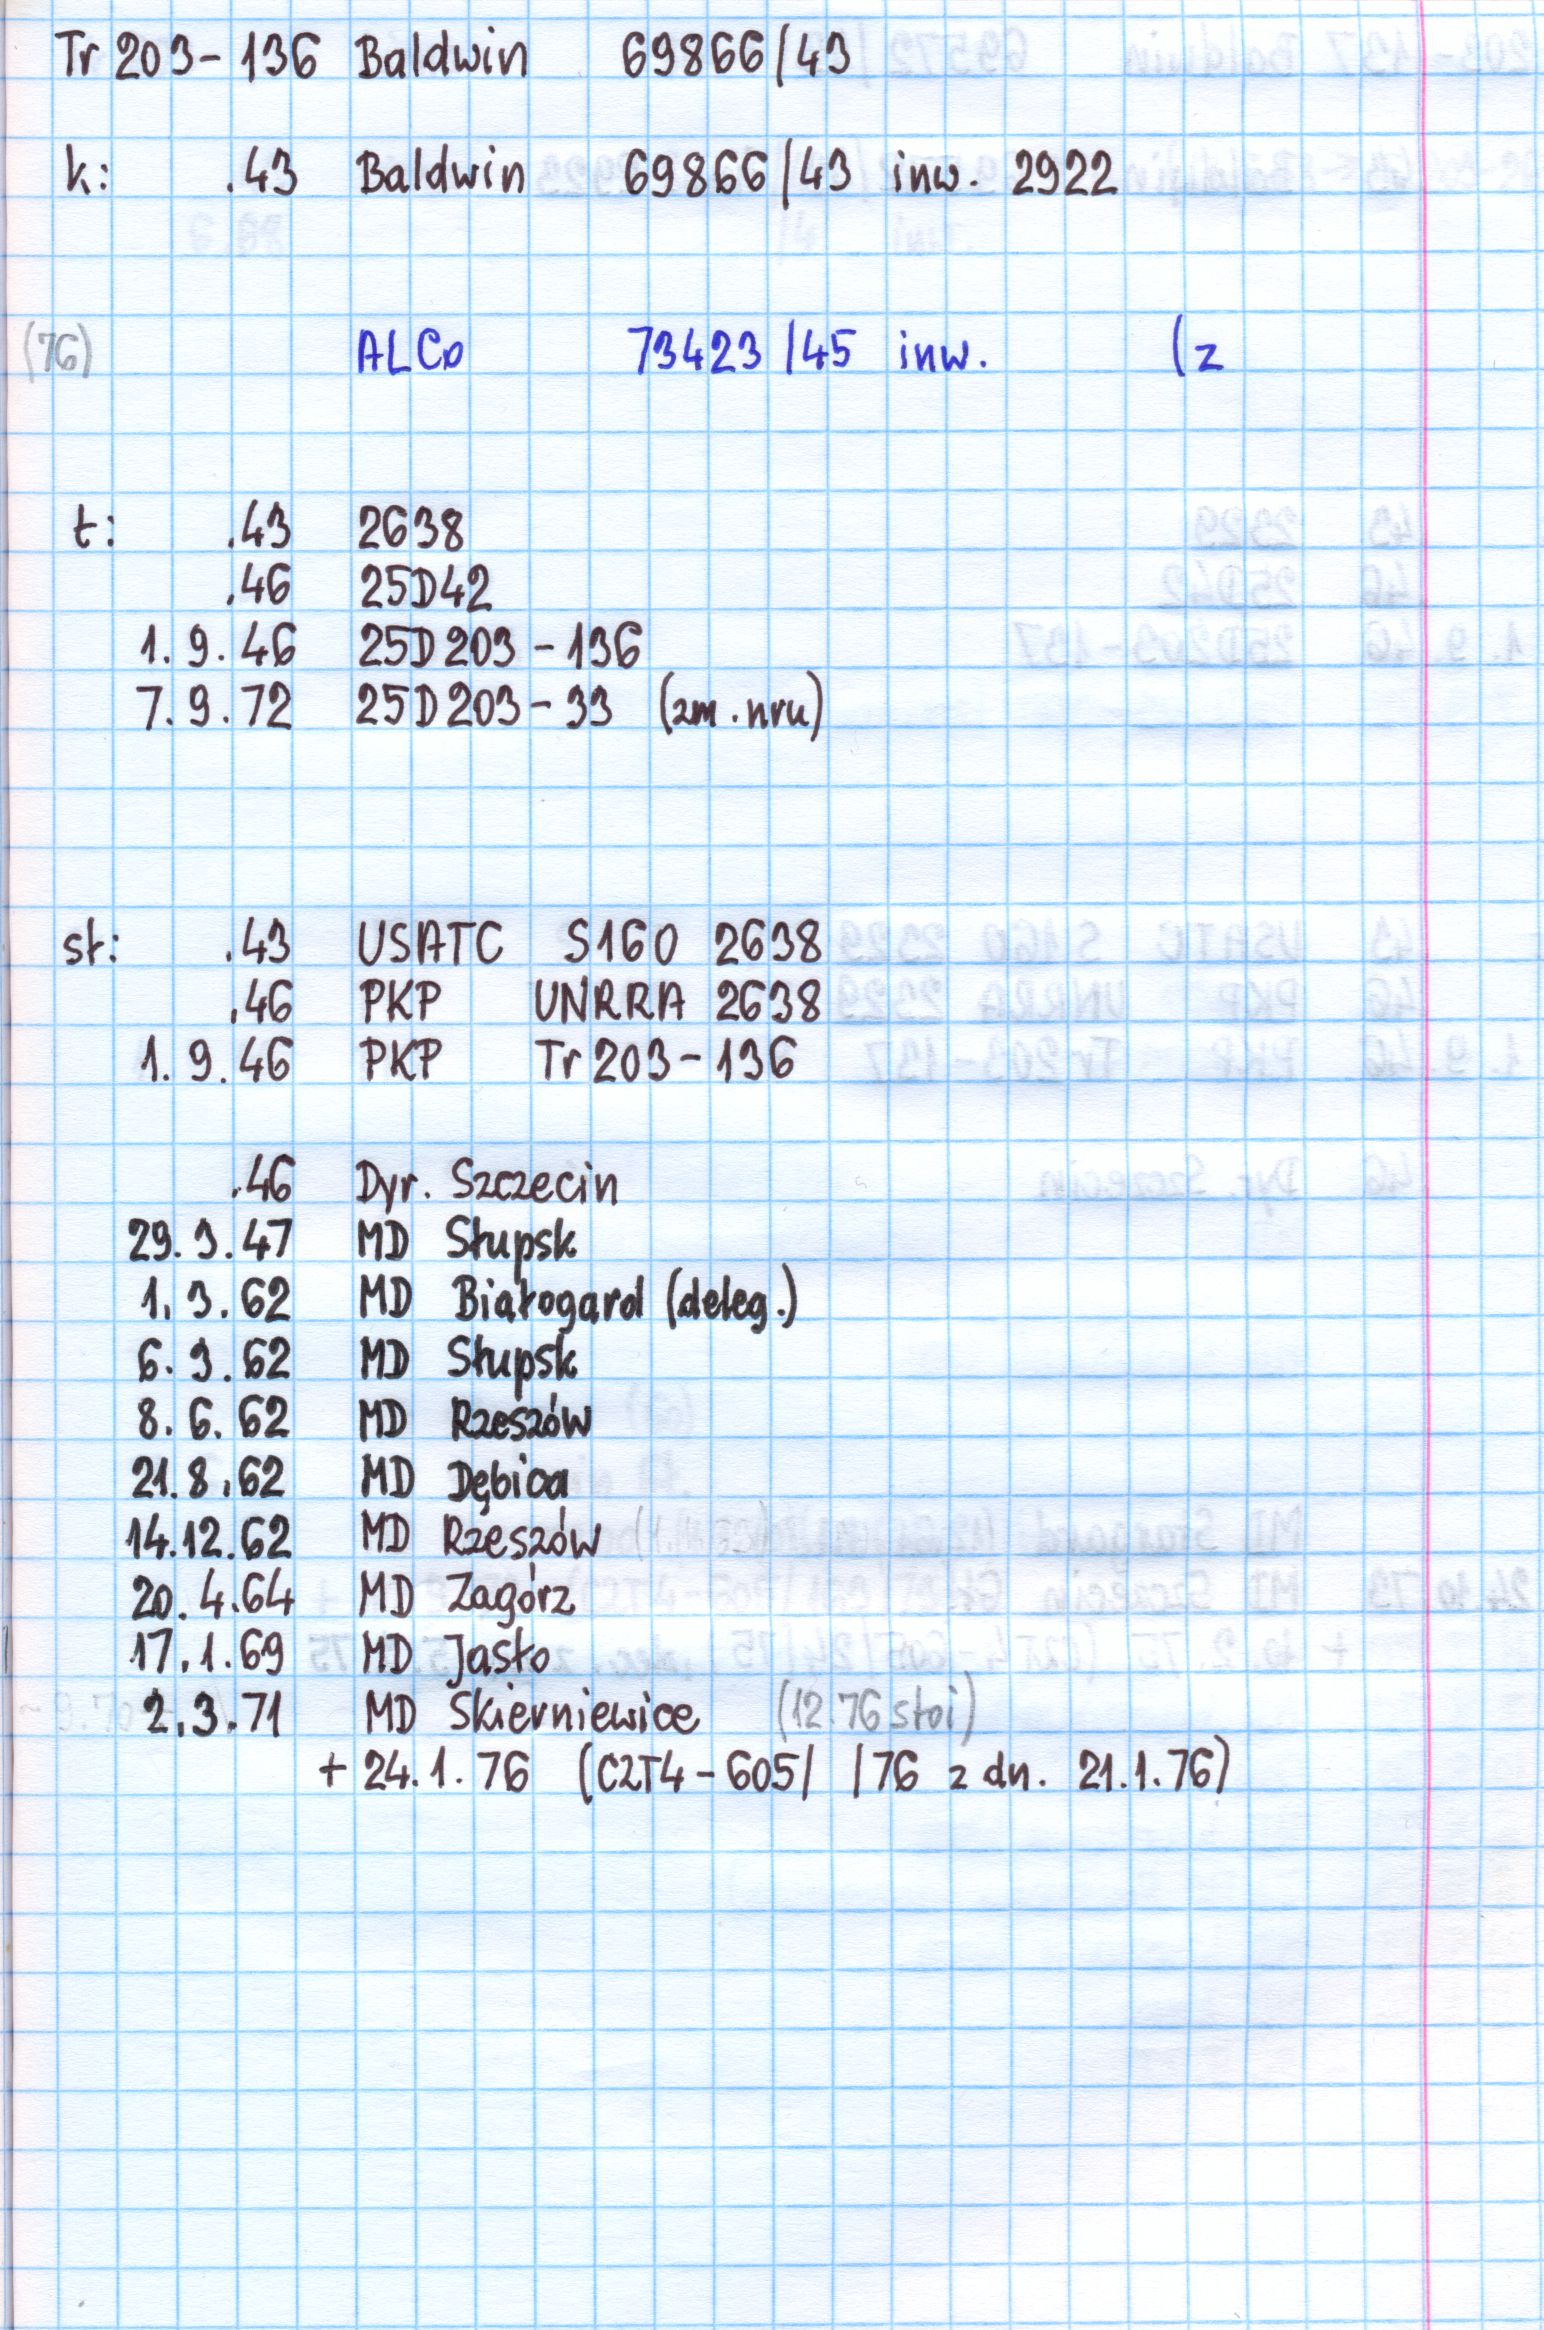 Tr 203-136 Baldwin 69866/43
k: .43 Baldwin 69866/43 inw. 2922
(76) ALCo 73423/45 inw. (z
t: .43 2638
.46 25D42
1.9.46 25D203-136
7.9.72 25D203-33 (zm. nru)
st: .43 USATC S160 2638
.46 PKP UNRRA 2638
1.9.46 PKP Tr 203-136
.46 Dyr. Szczecin
29.3.47 MD Słupsk
1.3.62 MD Białogard (deleg.)
6.3.62 MD Słupsk
8.6.62 MD Rzeszów
21.8.62 MD Dębica
14.12.62 MD Rzeszów
20.4.64 MD Zagórz
17.1.69 MD Jasło
2.3.71 MD Skierniewice (12.76 stoi)
+ 24.1.76 (CZT4-605/ /76 z dn. 21.1.76)